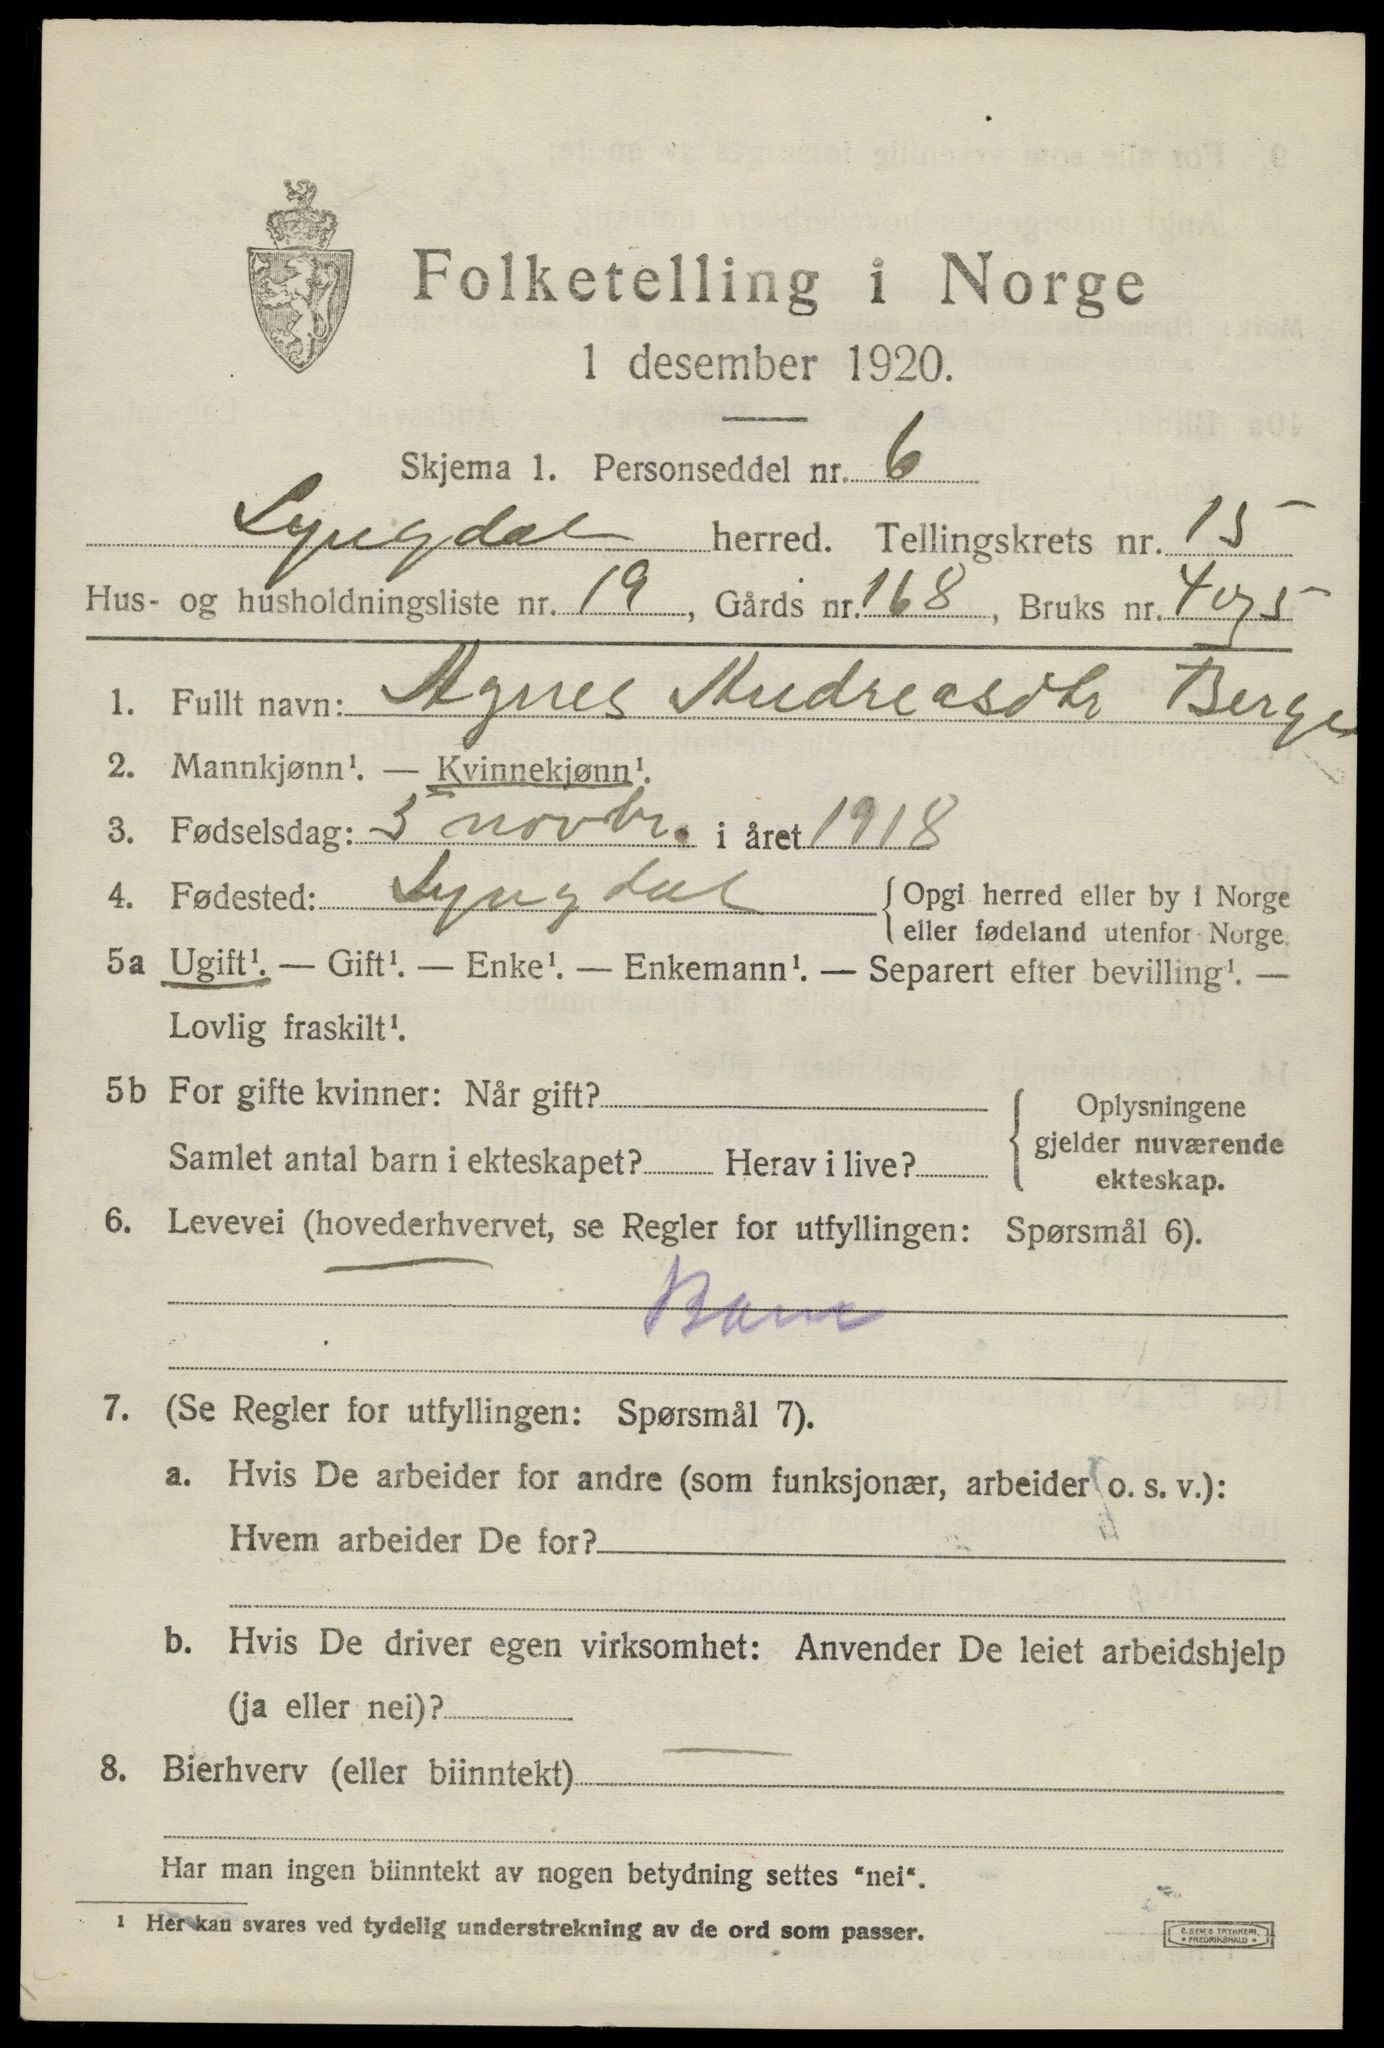 Folketelling i Norge
1 desember 1920.
Skjema 1. Personseddel nr. 6
Lyngdal herred. Tellingskrets nr. 15
Hus- og husholdningsliste nr. 19, Gårds nr. 168, Bruks nr. 4 og 5
1. Fullt navn: Agnes Andreasdtr Berge
2. Mannkjønn¹. — Kvinnekjønn¹.
3. Fødselsdag: 5 novbr. i året 1918
4. Fødested: Lyngdal {Opgi herred eller by i Norge
eller fødeland utenfor Norge.
5a Ugift¹. — Gift¹. — Enke¹. — Enkemann¹. — Separert efter bevilling¹. —
Lovlig fraskilt¹.
5b For gifte kvinner: Når gift?
Samlet antal barn i ekteskapet? Herav i live?
{Oplysningene
gjelder nuværende
ekteskap.
6. Levevei (hovederhvervet, se Regler for utfyllingen: Spørsmål 6).
Barn
7. (Se Regler for utfyllingen: Spørsmål 7).
a. Hvis De arbeider for andre (som funksjonær, arbeider o. s. v.):
Hvem arbeider De for?
b. Hvis De driver egen virksomhet: Anvender De leiet arbeidshjelp
(ja eller nei)?
8. Bierhverv (eller biinntekt)
Har man ingen biinntekt av nogen betydning settes "nei".
¹ Her kan svares ved tydelig understrekning av de ord som passer.
E. SEM'S TRYKKERI
* FREDRIKSHALD *